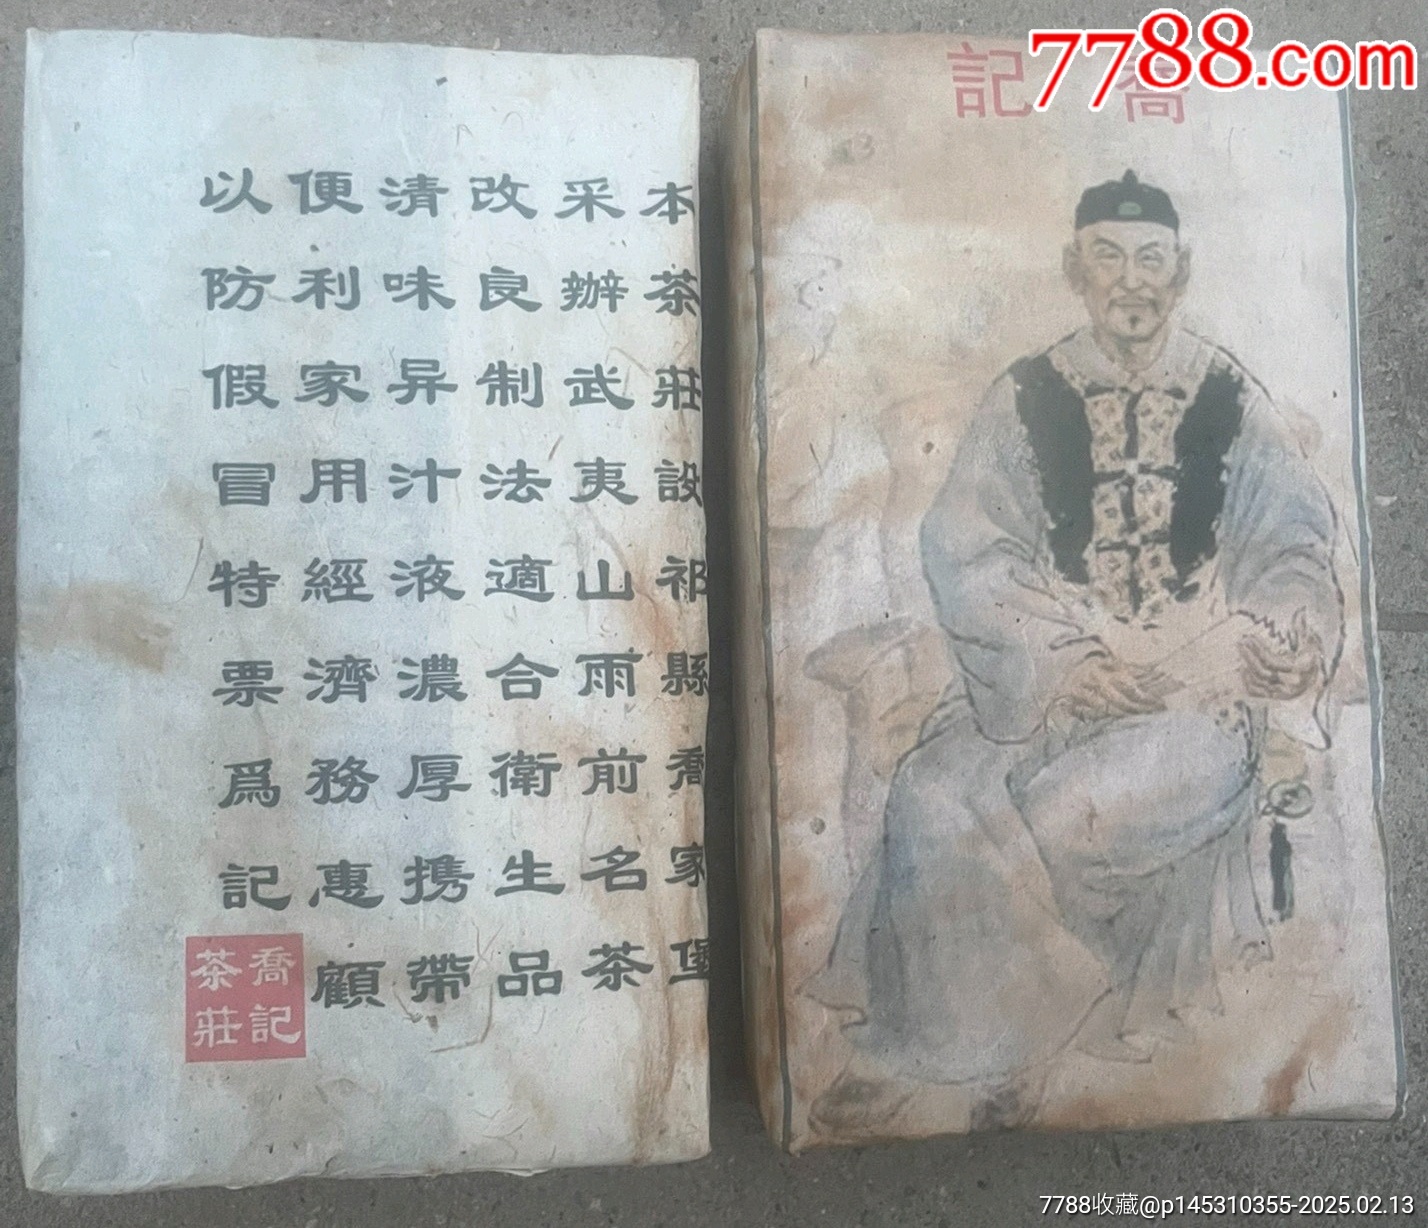 本茶莊設祁縣喬家堡
采辦武夷山雨前名茶
改良制法適合衛生品
清味异汁液濃厚携帶
便利家用經濟務惠顧
以防假冒特票爲記
喬記
茶莊
喬記
7788.com
7788收藏@p145310355-2025.02.13